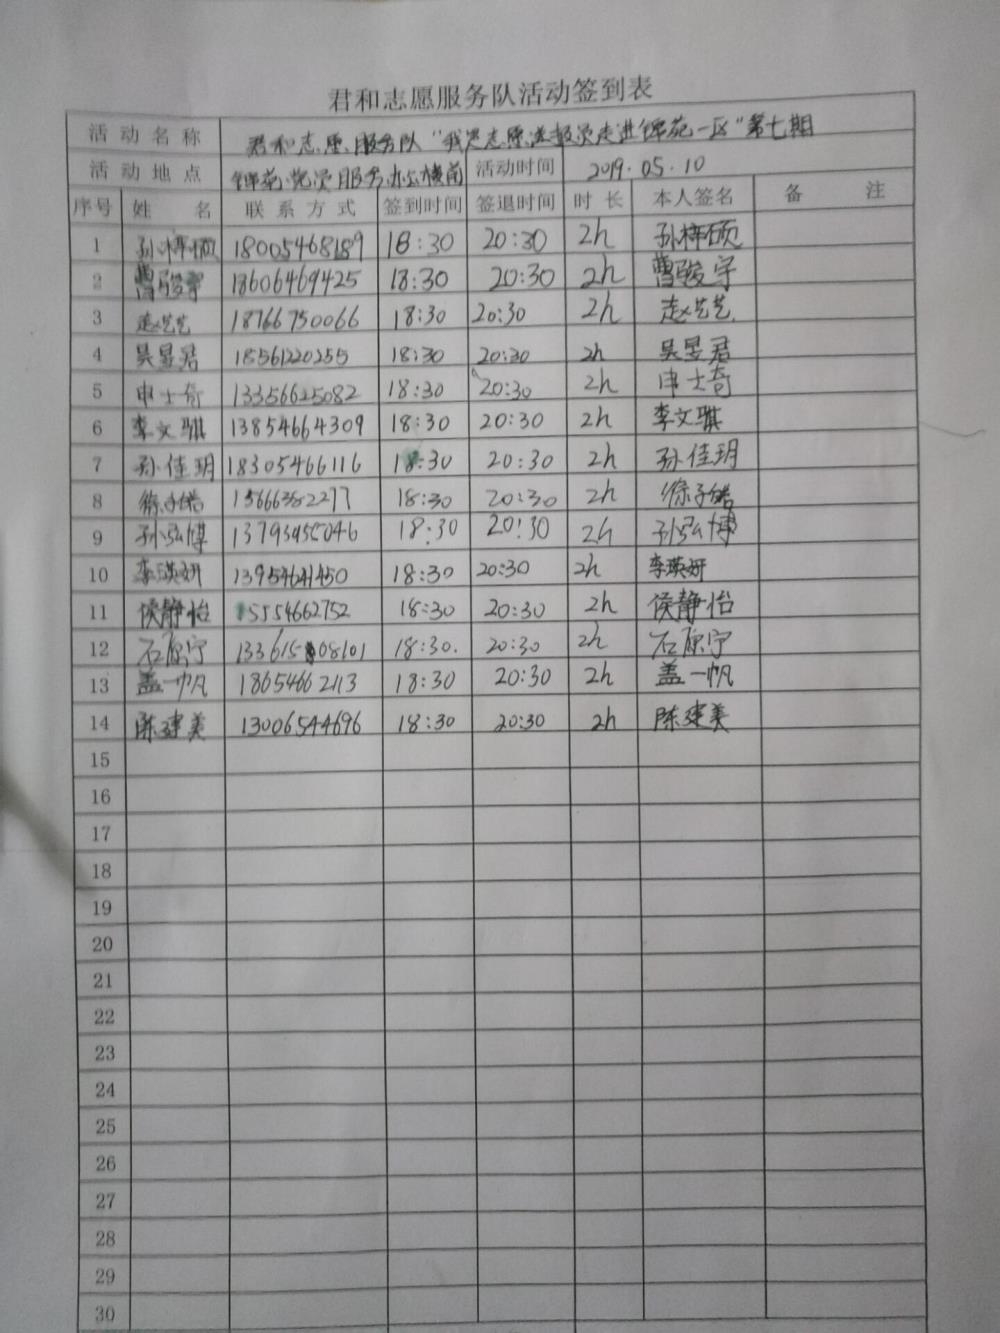 君和志愿服务队活动签到表
活动名称 君和志愿服务队"我是志愿送报员走进锦苑一区"第七期
活动地点 锦苑党员服务办公楼前 活动时间 2019.05.10
序号 姓名 联系方式 签到时间 签退时间 时长 本人签名 备注
1 孙梓硕 18005468189 18:30 20:30 2h 孙梓硕
2 曹骏宇 18606469425 18:30 20:30 2h 曹骏宇
3 赵艺艺 18766750066 18:30 20:30 2h 赵艺艺
4 吴昱君 18561220255 18:30 20:30 2h 吴昱君
5 申士奇 13356625082 18:30 20:30 2h 申士奇
6 李文骐 13854664309 18:30 20:30 2h 李文骐
7 孙佳玥 18305466116 18:30 20:30 2h 孙佳玥
8 徐子皓 15666382277 18:30 20:30 2h 徐子皓
9 孙弘博 18:30 20:30 2h 孙弘博
10 李瑛妍 18:30 20:30 2h 李瑛妍
11 侯静怡 15554662752 18:30 20:30 2h 侯静怡
12 石原宁 18:30. 20:30 2h 石原宁
13 盖一帆 18654662113 18:30 20:30 2h 盖一帆
14 陈建美 13006544696 18:30 20:30 2h 陈建美
15
16
17
18
19
20
21
22
23
24
25
26
27
28
29
30